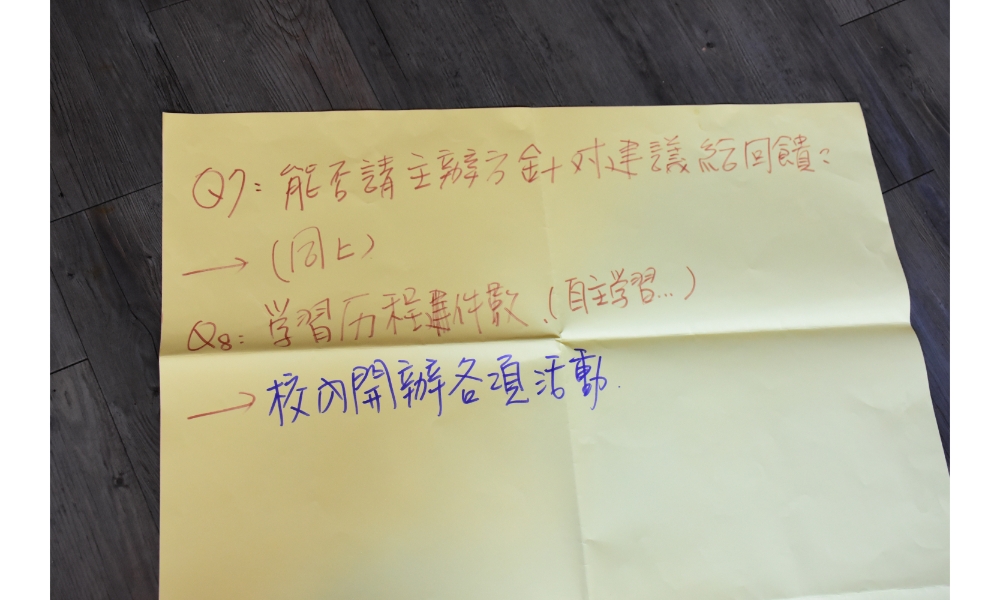 Q7: 能否請主辦方針对建議給回饋?
→ (同上)
Q8: 学習历程件數、(自主学習...)
→ 校內開辦各項活動.